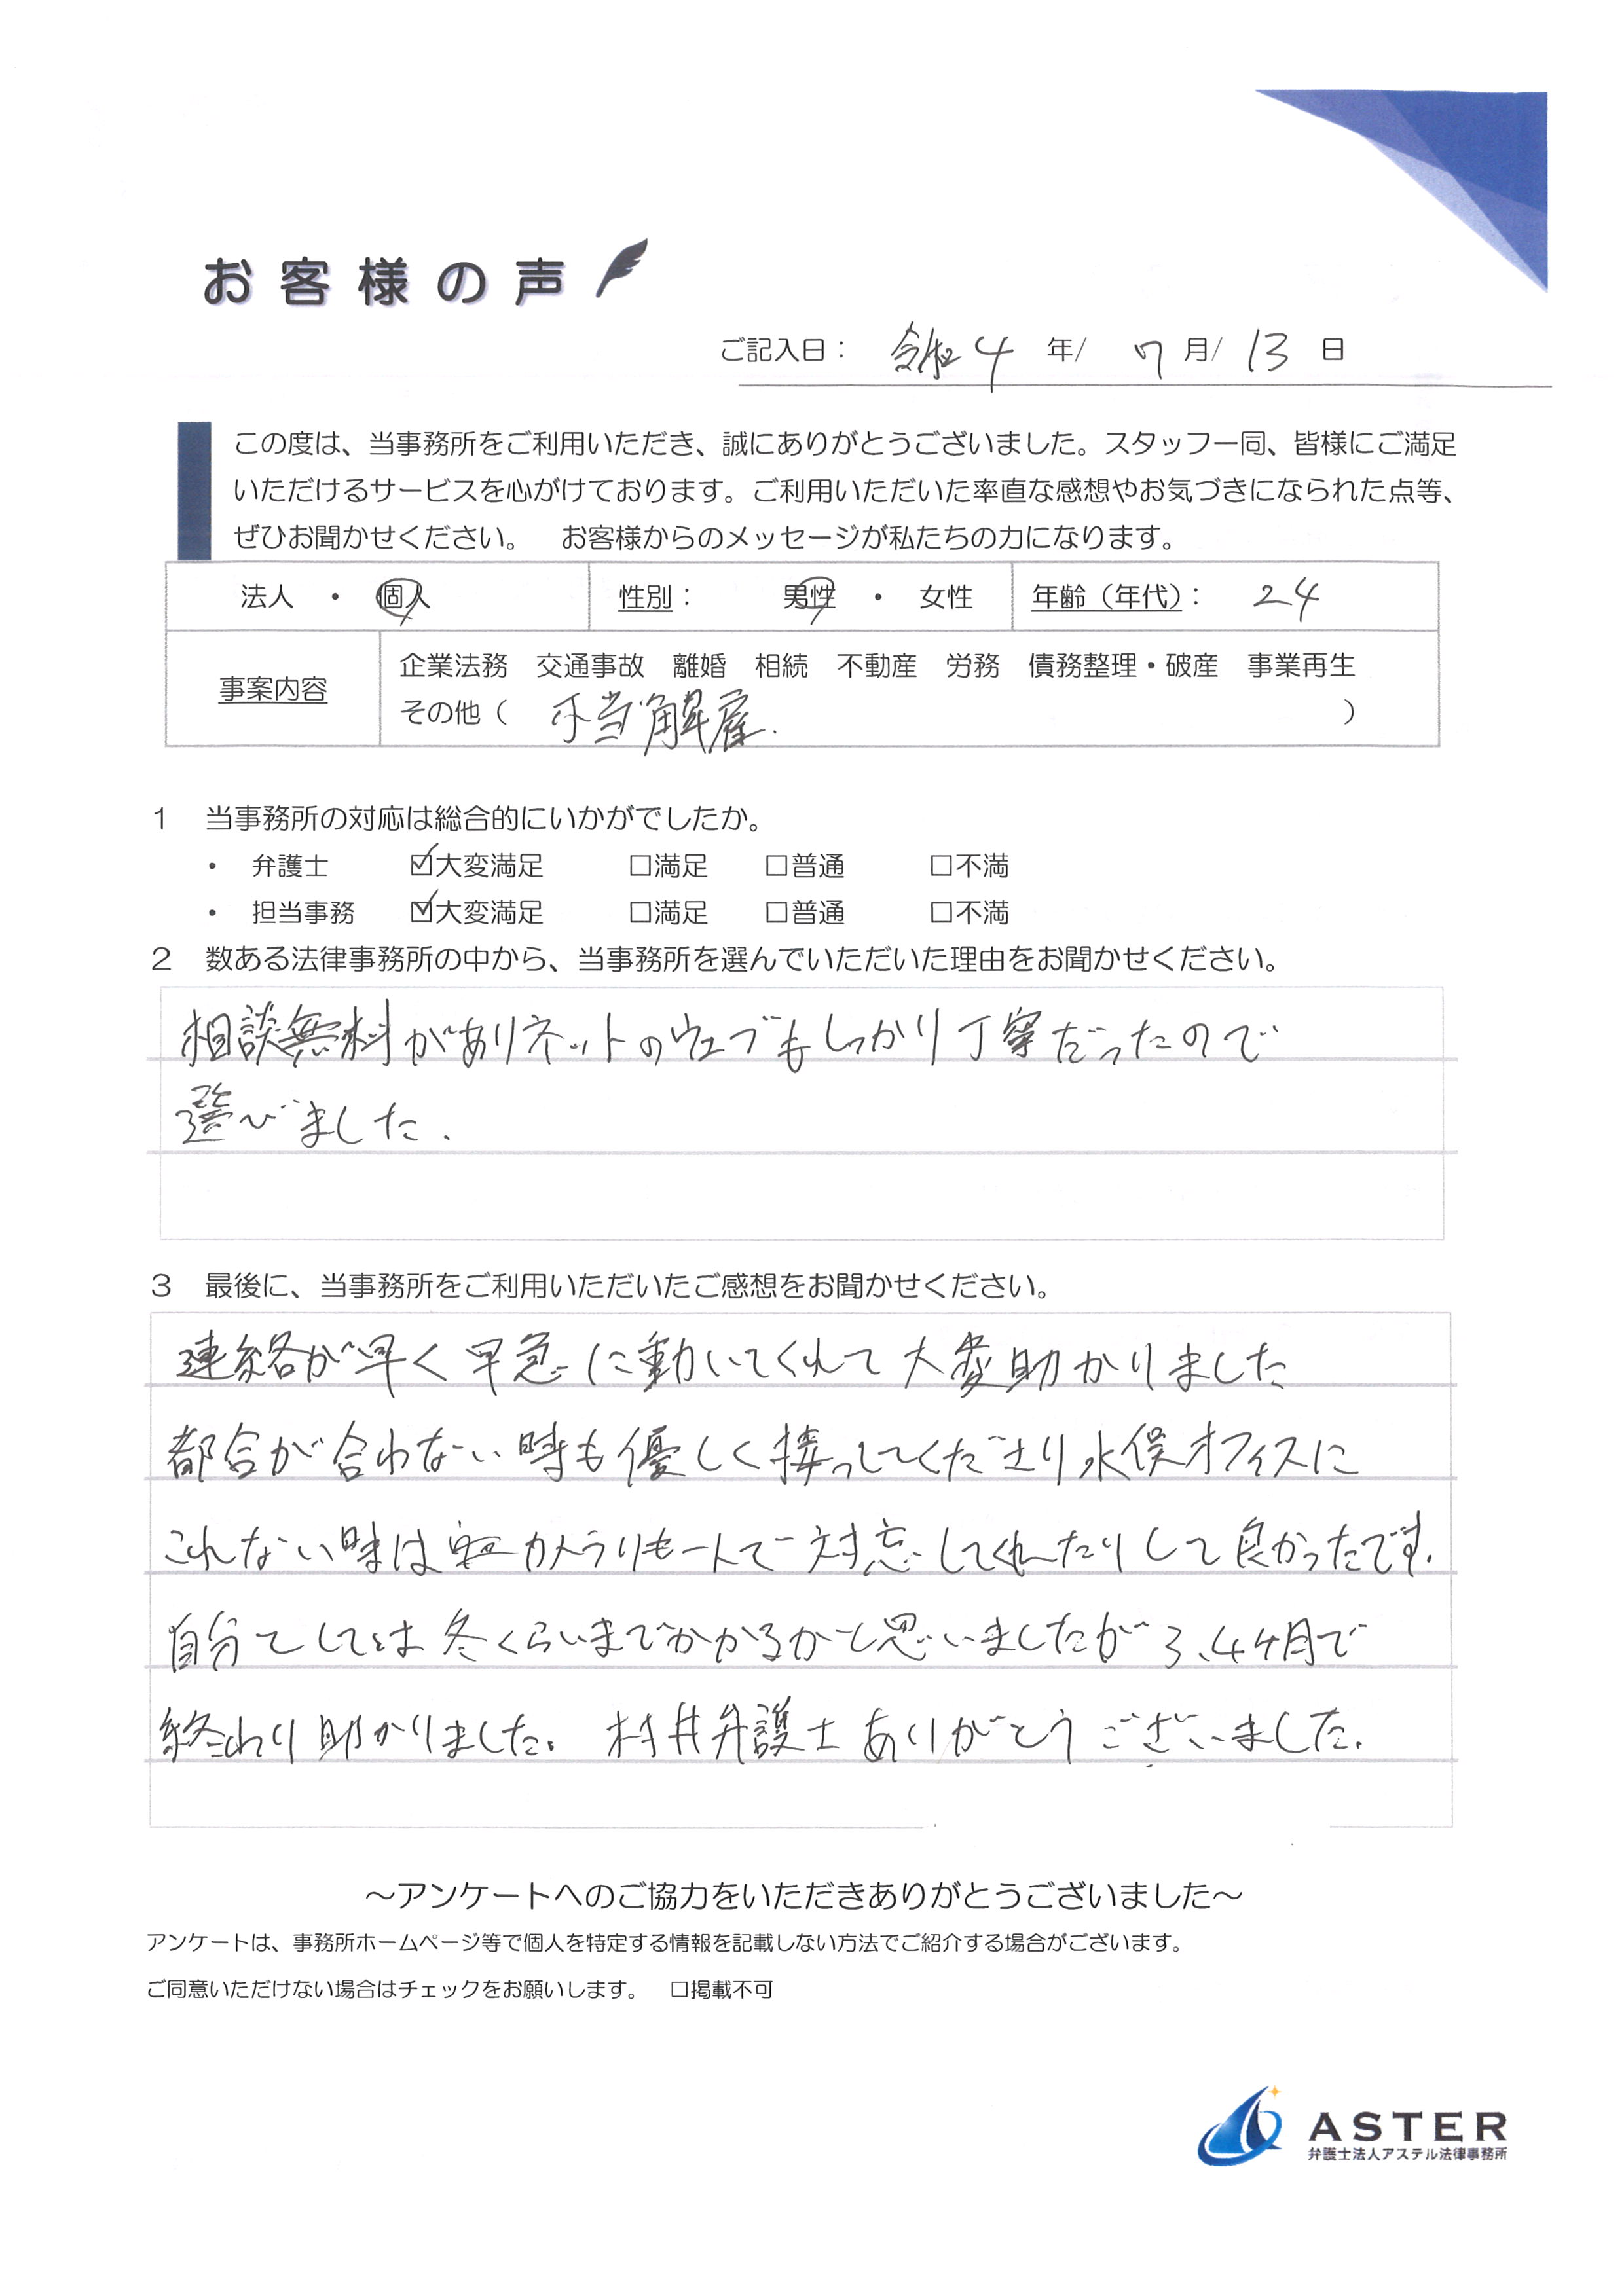 お客様の声
ご記入日： 令和4 年/ 7 月/ 13 日
この度は、当事務所をご利用いただき、誠にありがとうございました。スタッフ一同、皆様にご満足
いただけるサービスを心がけております。ご利用いただいた率直な感想やお気づきになられた点等、
ぜひお聞かせください。 お客様からのメッセージが私たちの力になります。
法人 ・ 個人 性別： 男性 ・ 女性 年齢（年代）： 24
事案内容
企業法務 交通事故 離婚 相続 不動産 労務 債務整理・破産 事業再生
その他（ 不当解雇. ）
1 当事務所の対応は総合的にいかがでしたか。
・ 弁護士 ☑大変満足 □満足 □普通 □不満
・ 担当事務 ☑大変満足 □満足 □普通 □不満
2 数ある法律事務所の中から、当事務所を選んでいただいた理由をお聞かせください。
相談無料がありネットのウェブもしっかり丁寧だったので
選びました.
3 最後に、当事務所をご利用いただいたご感想をお聞かせください。
連絡が早く早急に動いてくれて大変助かりました
都合が合わない時も優しく接っしてくださり水俣オフィスに
これない時は カメラリモートで対応してくれたりして良かったです.
自分てしては冬くらいまでかかるかと思いましたが3、4ヶ月で
終わり助かりました。村井弁護士ありがとうございました.
～アンケートへのご協力をいただきありがとうございました～
アンケートは、事務所ホームページ等で個人を特定する情報を記載しない方法でご紹介する場合がございます。
ご同意いただけない場合はチェックをお願いします。 □掲載不可
ASTER
弁護士法人アステル法律事務所